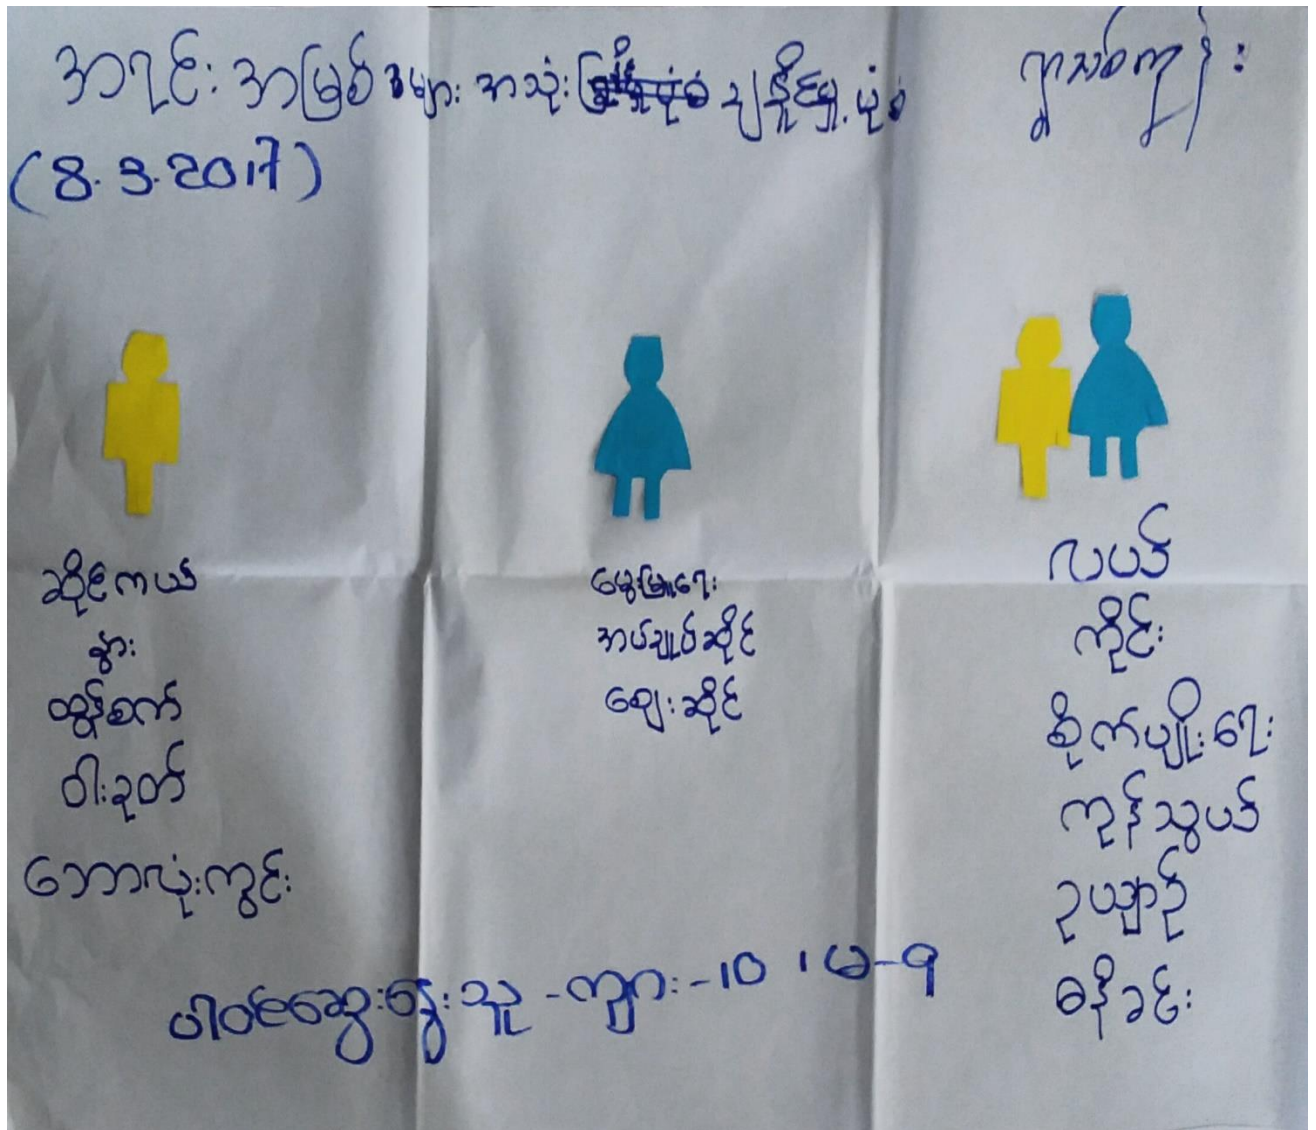 အရင်း အမြစ် များ အသုံး ချနိုင်မှု ပုံစံ
ရွာသစ်ကုန်း
(8.3.2017)
ဆိုင်ကယ်
နွား
ထွန်စက်
ဝါးခုတ်
ဘောလုံးကွင်း
မွေးမြူရေး
အပ်ချုပ်ဆိုင်
ဈေးဆိုင်
လယ်
ကိုင်း
စိုက်ပျိုးရေး
ကုန်သွယ်
ဥယျာဉ်
ဓနိခင်း
ပါဝင်ဆွေးနွေးသူ - ကျား - 10 ၊ မ - ၅